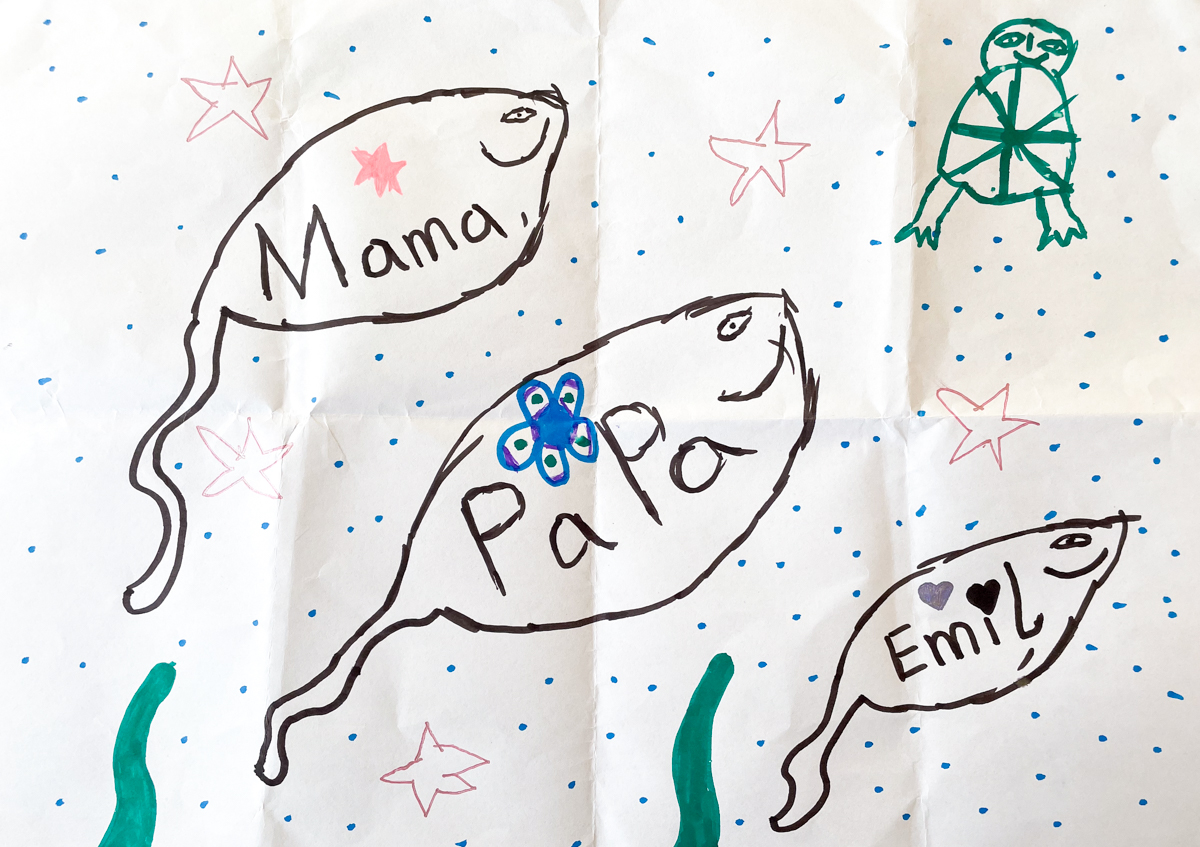 Mama
PaPa
Emil